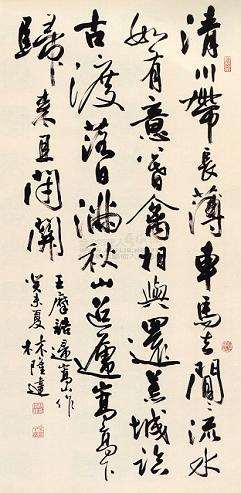 清川帶長薄車馬去閒〻流水
如有意暮禽相與還荒城臨
古渡落日滿秋山迢遞嵩高下
歸來且閉關
王摩詰歸嵩山作
癸未夏 林隆達